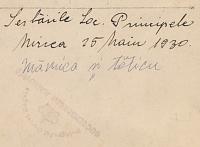 Serbările Soc. Principele
Mircea 25 Maiu 1930.
Mămica și tăticu